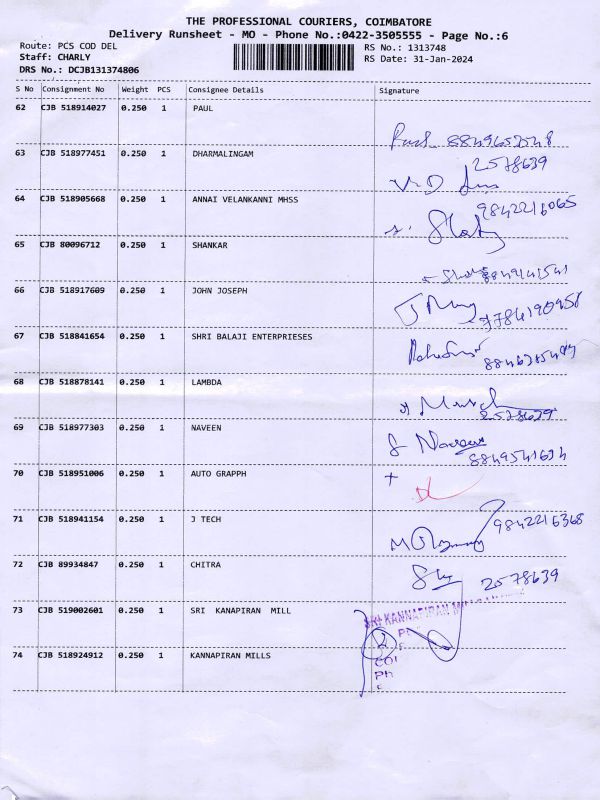 THE PROFESSIONAL COURIERS, COIMBATORE
Delivery Runsheet - MO - Phone No.:0422-3505555 - Page No.:6
Route: PCS COD DEL
RS No.: 1313748
Staff: CHARLY
RS Date: 31-Jan-2024
DRS No.: DCJB131374806
S No Consignment No Weight PCS Consignee Details Signature
62 CJB 518914027 0.250 1 PAUL
Paul
63 CJB 518977451 0.250 1 DHARMALINGAM
2578639
64 CJB 518905668 0.250 1 ANNAI VELANKANNI MHSS
9842216065
65 CJB 80096712 0.250 1 SHANKAR
66 CJB 518917609 0.250 1 JOHN JOSEPH
67 CJB 518841654 0.250 1 SHRI BALAJI ENTERPRIESES
68 CJB 518878141 0.250 1 LAMBDA
2578639
69 CJB 518977303 0.250 1 NAVEEN
8849541634
70 CJB 518951006 0.250 1 AUTO GRAPPH
71 CJB 518941154 0.250 1 J TECH
9842216368
72 CJB 89934847 0.250 1 CHITRA
2578639
73 CJB 519002601 0.250 1 SRI KANAPIRAN MILL
SRI KANNAPIRAN
74 CJB 518924912 0.250 1 KANNAPIRAN MILLS